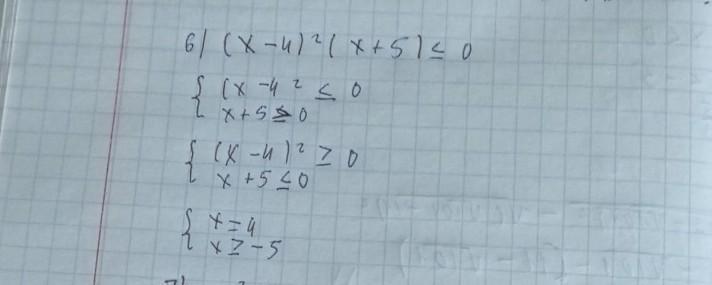 б) (x-4)²(x+5) ≤ 0
{ (x-4² ≤ 0
x+5 ≥ 0
{ (x-4)² ≥ 0
x+5 ≤ 0
{ x=4
x ≥ -5